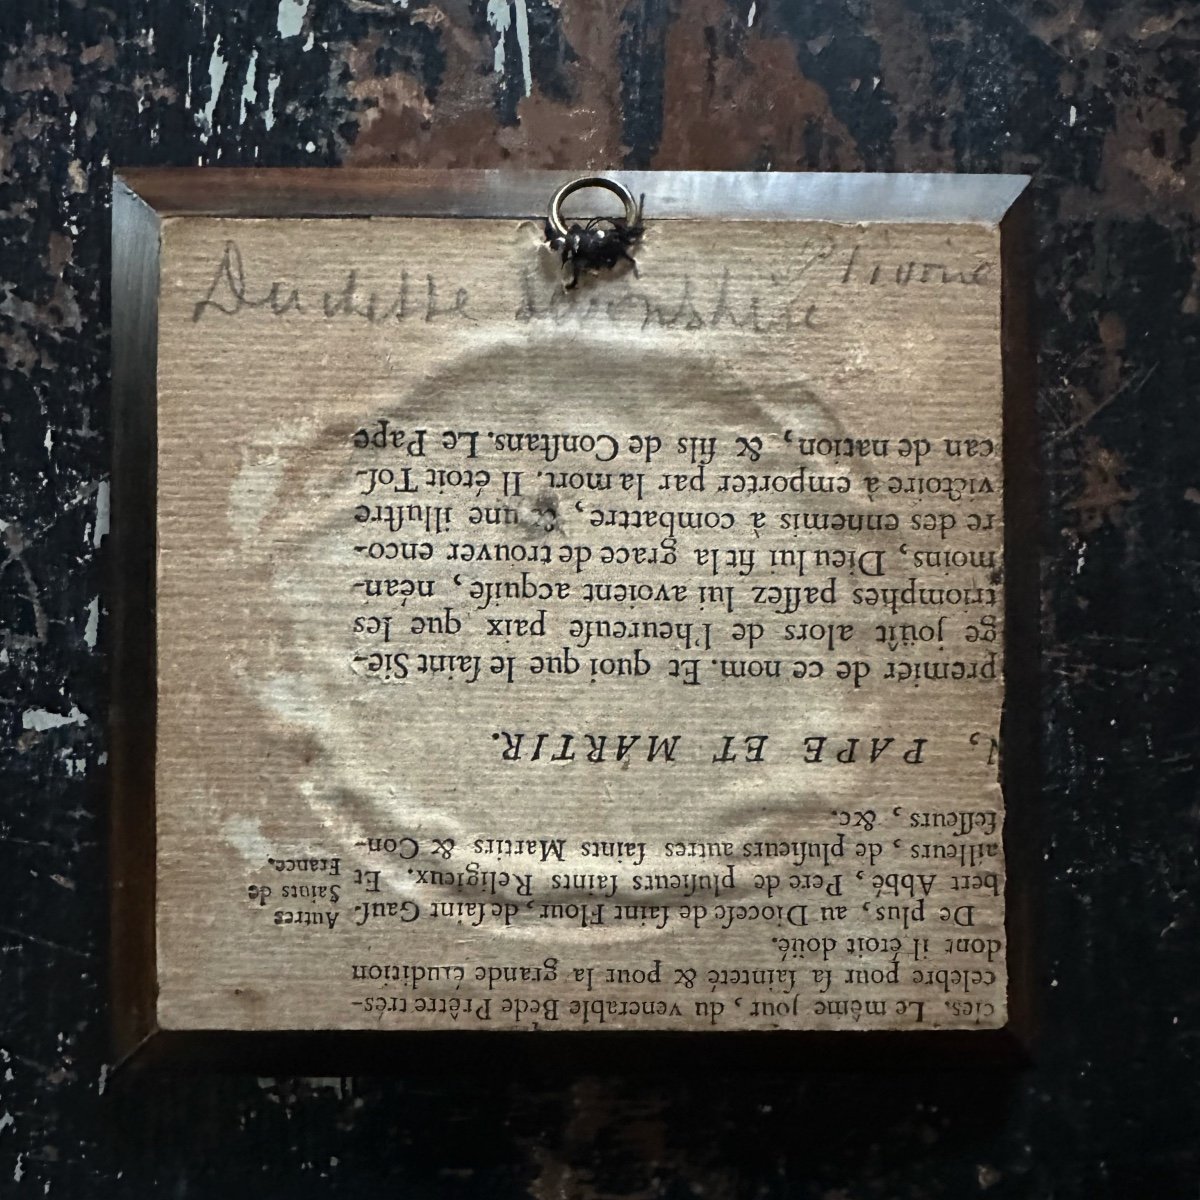 Duchesse Devonshire
ivoire
cies. Le même jour, du venerable Bede Prêtre très-
celebre pour ſa ſainteté & pour la grande érudition
dont il étoit doüé.
De plus, au Dioceſe de ſaint Flour, de ſaint Gauſ-
bert Abbé, Pere de pluſieurs ſaints Religieux. Et
ailleurs, de pluſieurs autres ſaints Martirs & Con-
feſſeurs, &c.
Autres
Saints de
France.
, PAPE ET MARTIR.
premier de ce nom. Et quoi que le ſaint Sie-
ge joüît alors de l'heureuſe paix que les
triomphes paſſez lui avoient acquiſe, néan-
moins, Dieu lui fit la grace de trouver enco-
re des ennemis à combattre, & une illuſtre
victoire à emporter par la mort. Il étoit Toſ-
can de nation, & fils de Conſtans. Le Pape